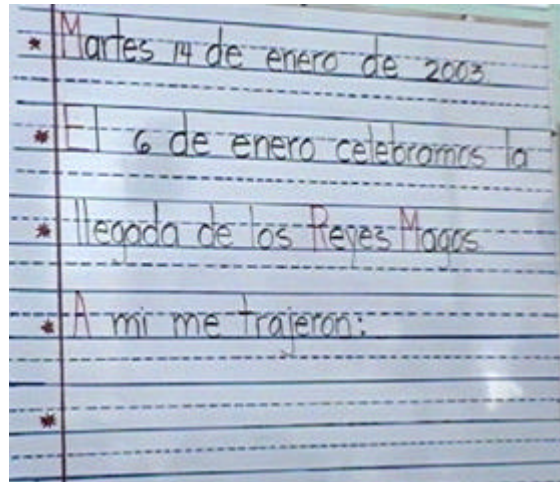 Martes 14 de enero de 2003
El 6 de enero celebramos la
llegada de los Reyes Magos
A mi me trajeron: